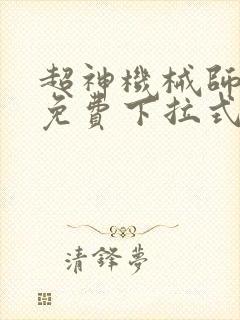 超神機械師
免費下拉式
清鋒夢